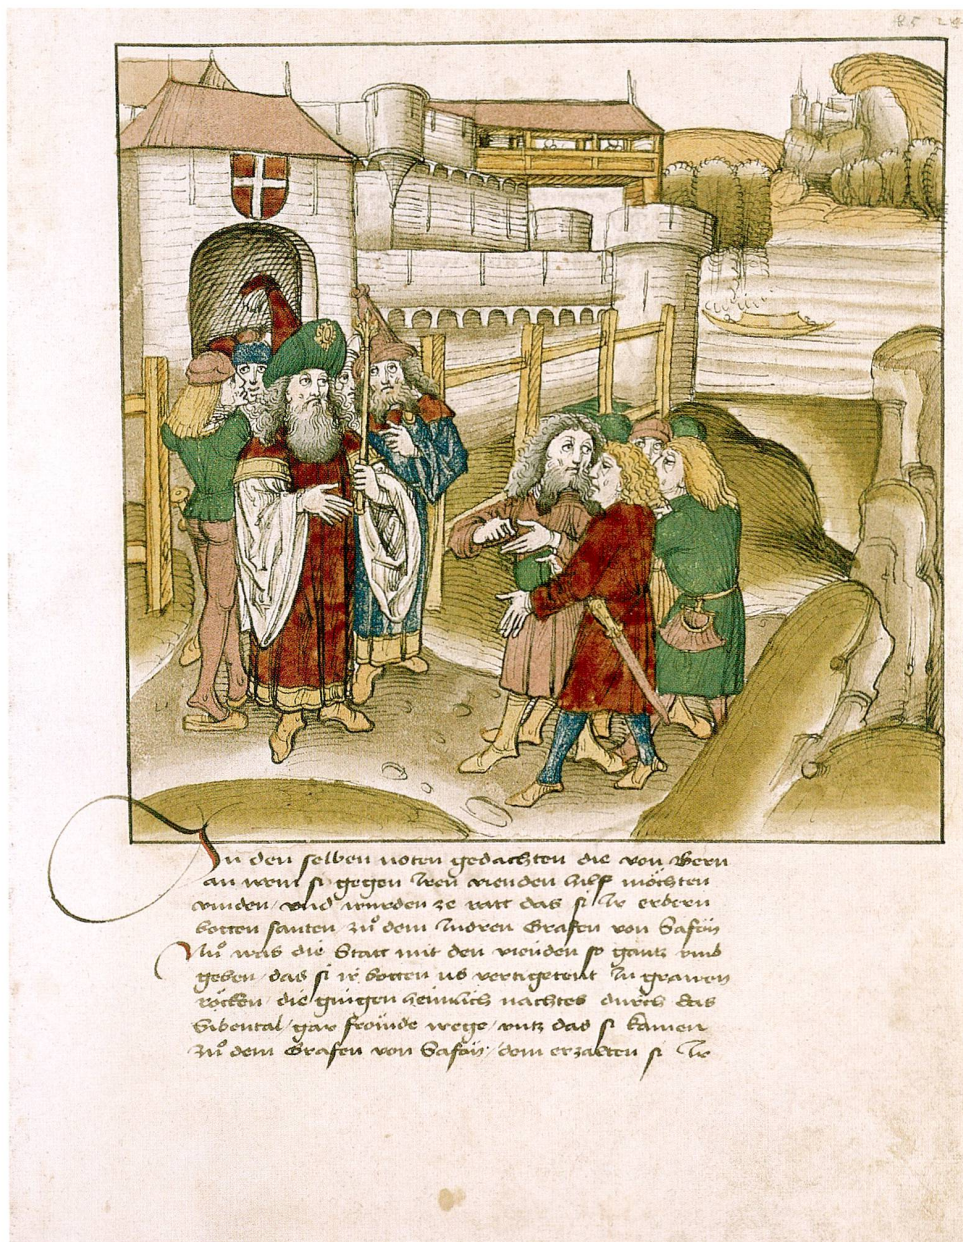 85 24
In den selben noten gedachten die von Bern
an wem si gegen Iren vienden hilf möchten
vinden / vnd wurden ze ratt das si Ir erbern
botten santen / zuͦ dem Indren Grafen von Safoÿ
Nuͦ was die Statt mit den vienden so gantz vmb
geben / das si ir botten us vertigetent In grawen
röcken / die giengen heimlich nachtes durch das
Sibental / gar frömde wege / vntz das si kamen
zuͦ dem Grafen von Safoÿ / dem erzalten si Ir